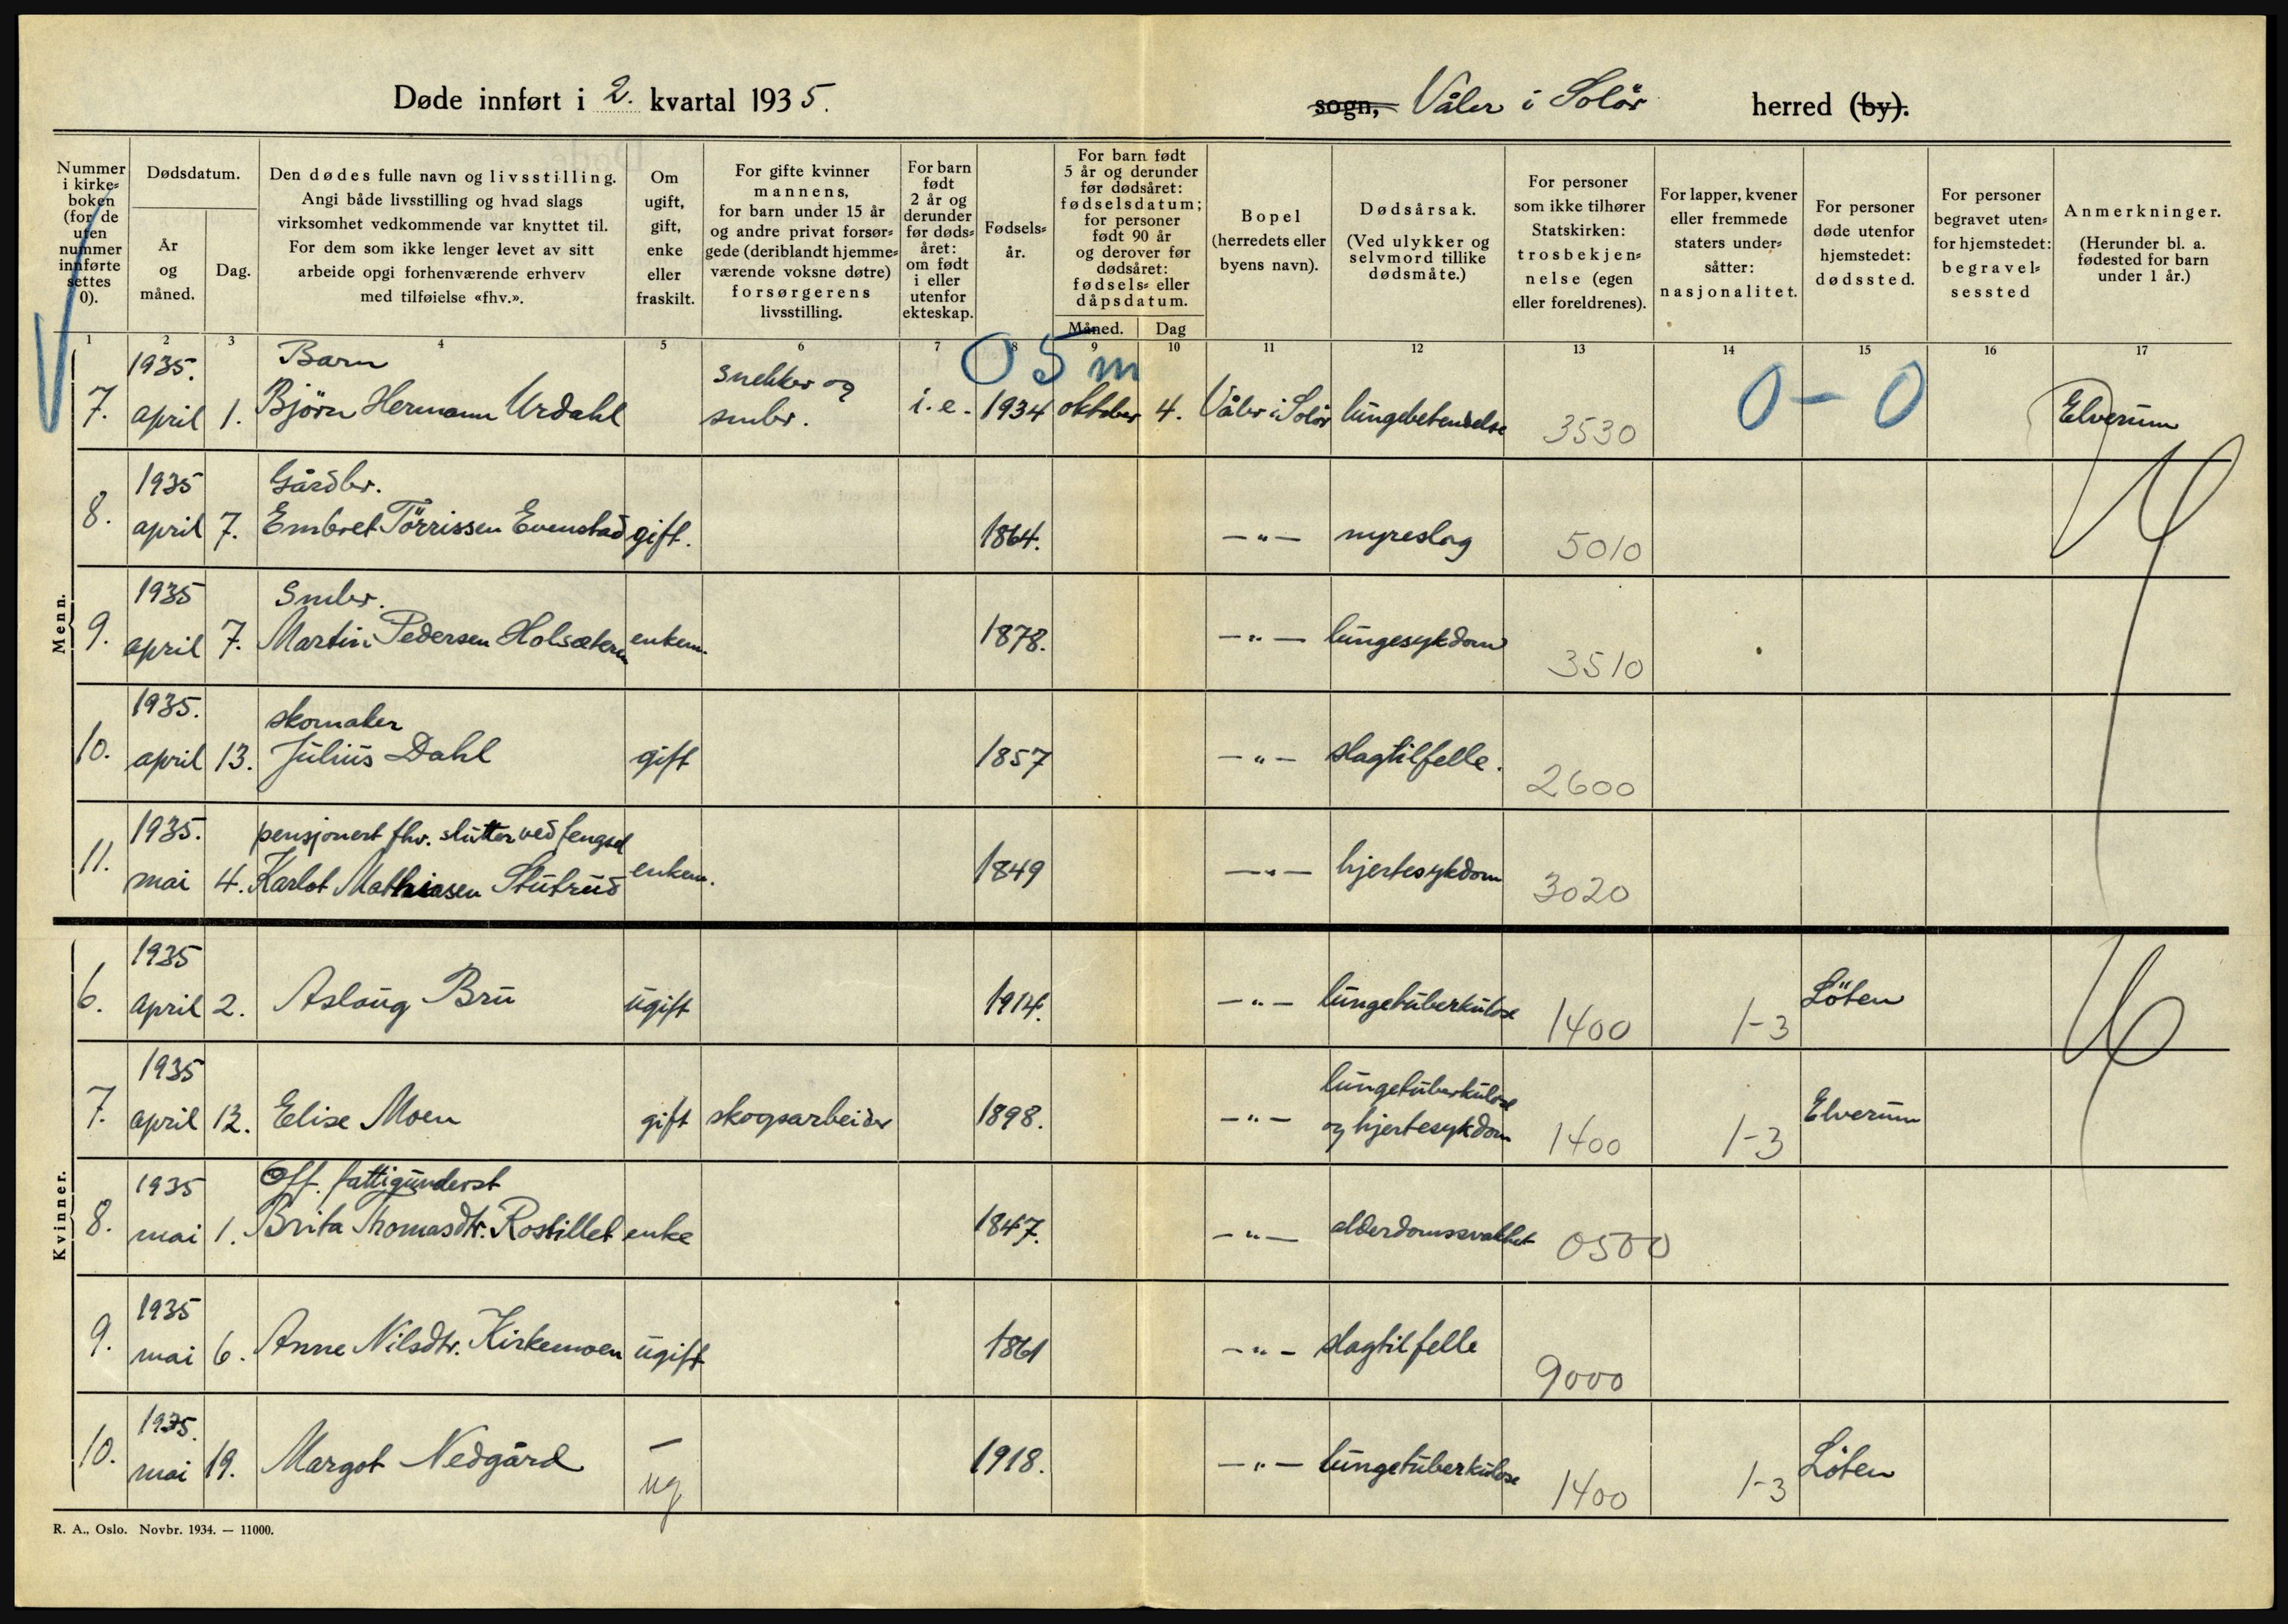 Døde innført i 2. kvartal 1935. sogn, Våler i Solör herred (by).
Nummer i kirke= boken (for de uten nummer innførte settes 0).
Dødsdatum.
År og måned.
Dag.
Den dødes fulle navn og livsstilling.
Angi både livsstilling og hvad slags
virksomhet vedkommende var knyttet til.
For dem som ikke lenger levet av sitt
arbeide opgi forhenværende erhverv
med tilføielse «fhv.».
Om ugift, gift, enke eller fraskilt.
For gifte kvinner mannens, for barn under 15 år og andre privat forsør= gede (deriblandt hjemme= værende voksne døtre) forsørgerens livsstilling.
For barn født 2 år og derunder før døds= året: om født i eller utenfor ekteskap.
Fødsels= år.
For barn født 5 år og derunder før dødsåret: fødselsdatum; for personer født 90 år og derover før dødsåret: fødsels= eller dåpsdatum.
Måned. Dag
Bopel (herredets eller byens navn).
Dødsårsak. (Ved ulykker og selvmord tillike dødsmåte.)
For personer som ikke tilhører Statskirken: trosbekjen= nelse (egen eller foreldrenes).
For lapper, kvener eller fremmede staters under= såtter: nasjonalitet.
For personer døde utenfor hjemstedet: dødssted.
For personer begravet uten= for hjemstedet: begravel= sessted
Anmerkninger. (Herunder bl. a. fødested for barn under 1 år.)
1 2 3 4 5 6 7 8 9 10 11 12 13 14 15 16 17
Menn.
1935. Barn snekker og 05 m
7. april 1. Björn Hermann Urdahl smbr. i. e. 1934 oktober 4. Våler i Solör lungebetendelse 3530 0 – 0 Elverum
1935 Gårdbr.
8. april 7. Embret Törrissen Evenstad gift. 1864. —"— nyreslag 5010
1935 Smbr.
9. april 7. Martin Pedersen Holsæteren enkem. 1878. —"— lungesykdom 3510
1935. skomaker
10. april 13. Julius Dahl gift 1857 —"— slagtilfelle. 2600
1935. pensjonert fhv. slutter ved fengsel
11. mai 4. Karlot Mathiasen Stutrud enkem. 1849 —"— hjertesykdom 3020
Kvinner.
1935
6. april 2. Aslaug Bru ugift 1914. —"— lungetuberkulose 1400 1-3 Löten
1935 lungetuberkulose
7. april 12. Elise Moen gift skogsarbeider 1898. —"— og hjertesykdom 1400 1-3 Elverum
1935 Off. fattigunderst
8. mai 1. Brita Thomasdtr. Rostillet enke 1847. —"— alderdomssvakhet 0500
1935
9. mai 6. Anne Nilsdtr. Kirkemoen ugift 1861 —"— slagtilfelle 9000
1935.
10. mai 19. Margot Nedgård — ug 1918. —"— lungetuberkulose 1400 1-3 Löten
R. A., Oslo. Novbr. 1934. — 11000.